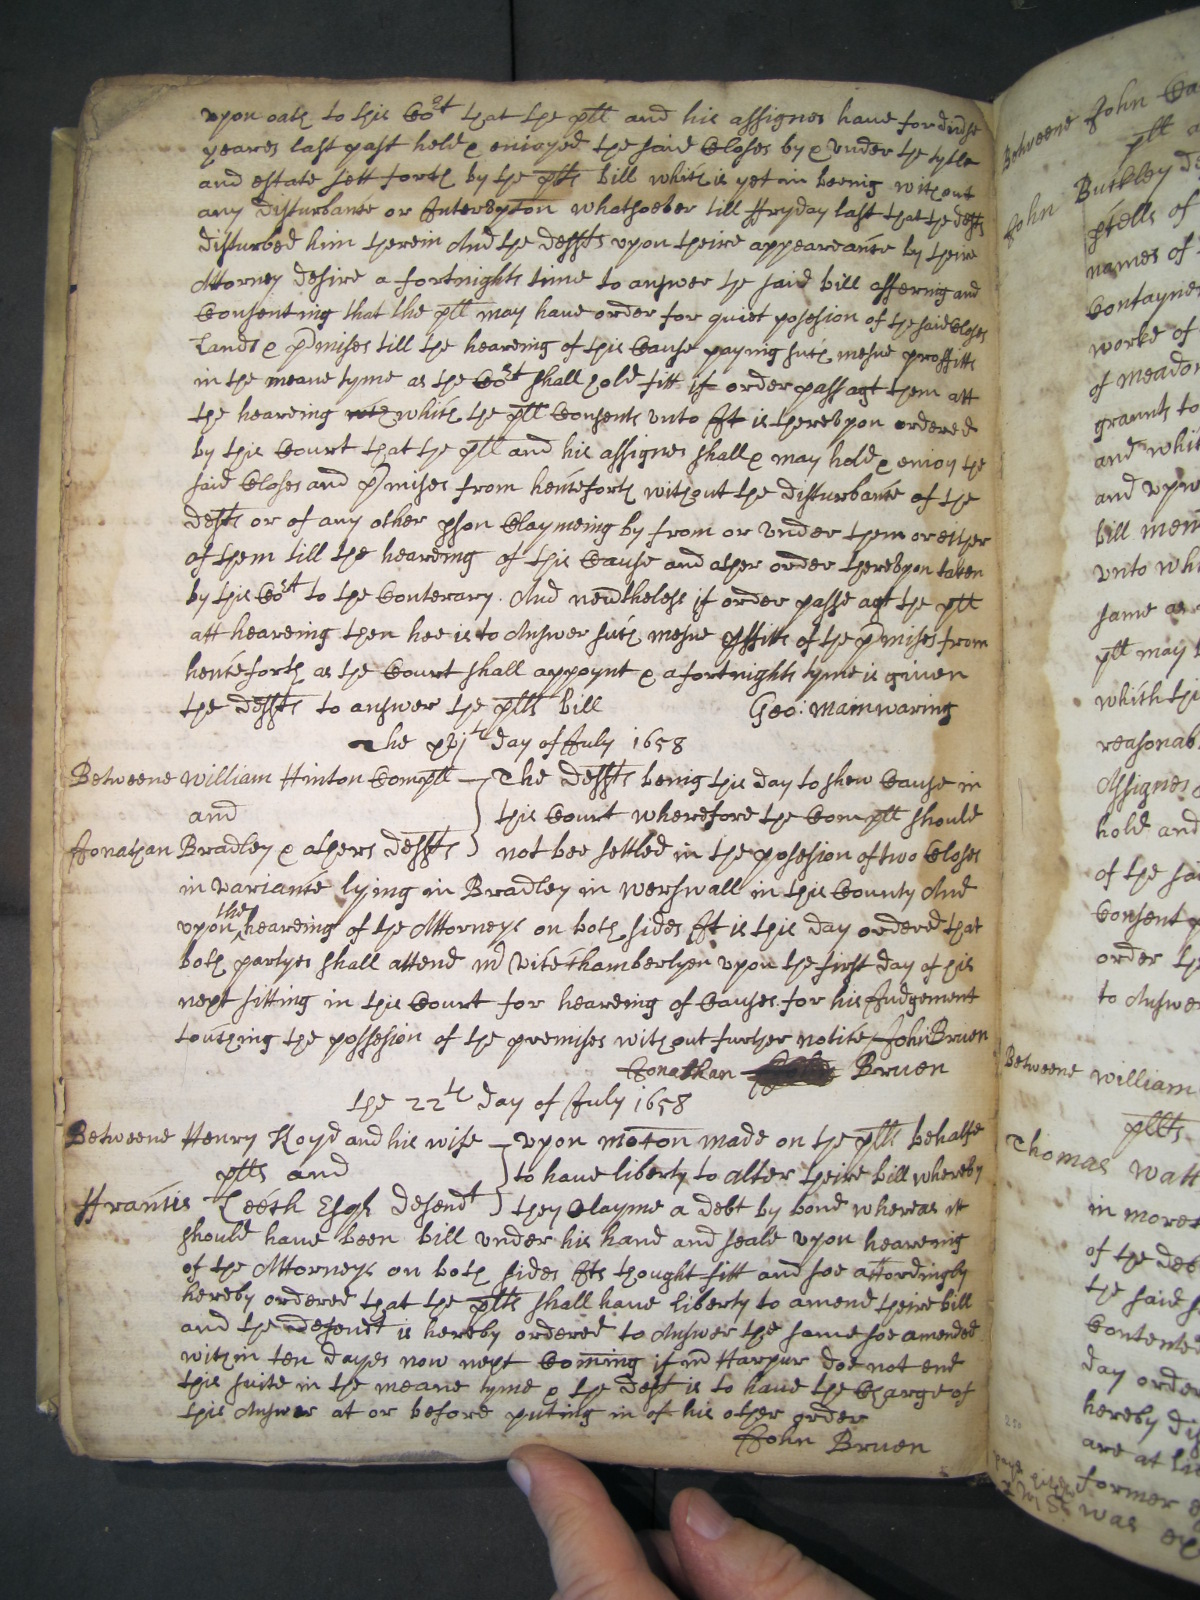 vpon oath to this Cort that the plt and his assignes haue for diuerse
yeares last past held & enioyed the said Closes by & vnder the tytle
and estate sett forth by the plts bill which is yet in beeing without
any disturbance or Interupton whatsoeuer till ffryday last that the defts
disturbed him therein And the deffts vpon theire appeareance by theire
Attorney desire a fortnights time to answer the said bill assering and
Consenting that the plt may haue order for quiet posesion of the said Closes
Lands & pmises till the heareing of this Cause paying such mesne proffitts
in the meane tyme as the Cort shall hold fitt if order pass agt them att
the heareing wch which the plt Consents vnto It is therevpon ordered
by this Court that the plt and his assignes shall & may hold & enioy the
said Closes and pmises from henceforth without the disturbance of the
defts or of any other pson Claymeing by from or vnder them or either
of them till the heareing of this Cause and other order therevpon taken
by this Cort to the Conterary. And neutheless if order passe agt the plt
att heareing then hee is to Answer such mesne pffitts of the pmises from
henceforth as the Court shall appoynt & a fortnights tyme is giuen
the deffts to answer the plts bill Geo: Mainwaring
The xvjth day of July 1658
Betweene William Hinton Complt The deffts being this day to shew Cause in
and this Court wherefore the Complt should
Jonathan Bradley & others deffts not bee settled in the posesion of two Closes
in variance lying in Bradley in Worswall in this County And
vpon the heareing of the Attorneys on both sides It is this day ordered that
both partyes shall attend mr vice chamberlyen vpon the first day of his
next sitting in this Court for heareing of Causes for his Judgement
touching the possesion of the premises without further notice John Bruen
Jonathan Bruen
the 22th day of July 1658
Betweene Henry Royd and his wife vpon moton made on the plts behalfe
plts and to haue liberty to alter theire bill whereby
ffrancis Leech Esqr defendt they Clayme a debt by bond whereas it
should haue been bill vnder his hand and seale vpon heareing
of the Attorneys on both sides Its thought fitt and soe accordingly
hereby ordered that the plts shall haue liberty to amend theire bill
and the defendt is hereby ordered to Answer the same soe amended
within ten dayes now next Coming if mr Harpur doe not end
this suite in the meane tyme & the deft is to haue the Charge of
this Answer at or before puting in of his other order
John Bruen
Betweene John
plt
John Buckley
pcells of
names of
Contayne
worke of
of meadow
graunts to
and whi
and vpw
bill men
vnto wh
same as
plt may
which thi
reasonab
Assignes
hold and
of the sa
Consent
order the
to Answe
Betweene William
pllts
Thomas Watt
in mores
of the
the said
Contented
day order
hereby di
are at li
former
was